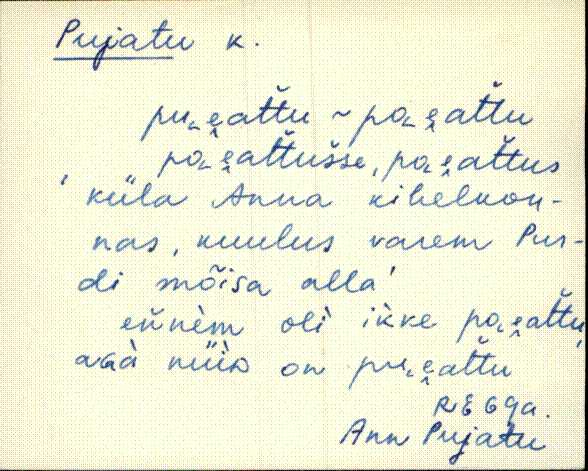 Pujatu k.
pu˾e̯at̆tu ~ po˾e̯at̆tu
po˾e̯at̆tušse, po˾e̯at̆tus
'küla Anna kihelkon-
nas, kuulus varem Pur-
di mõisa alla'
eňnèm olì ìkke po˾e̯at̆tu,
on pu˾e̯at̆tu
Ann Pujatu